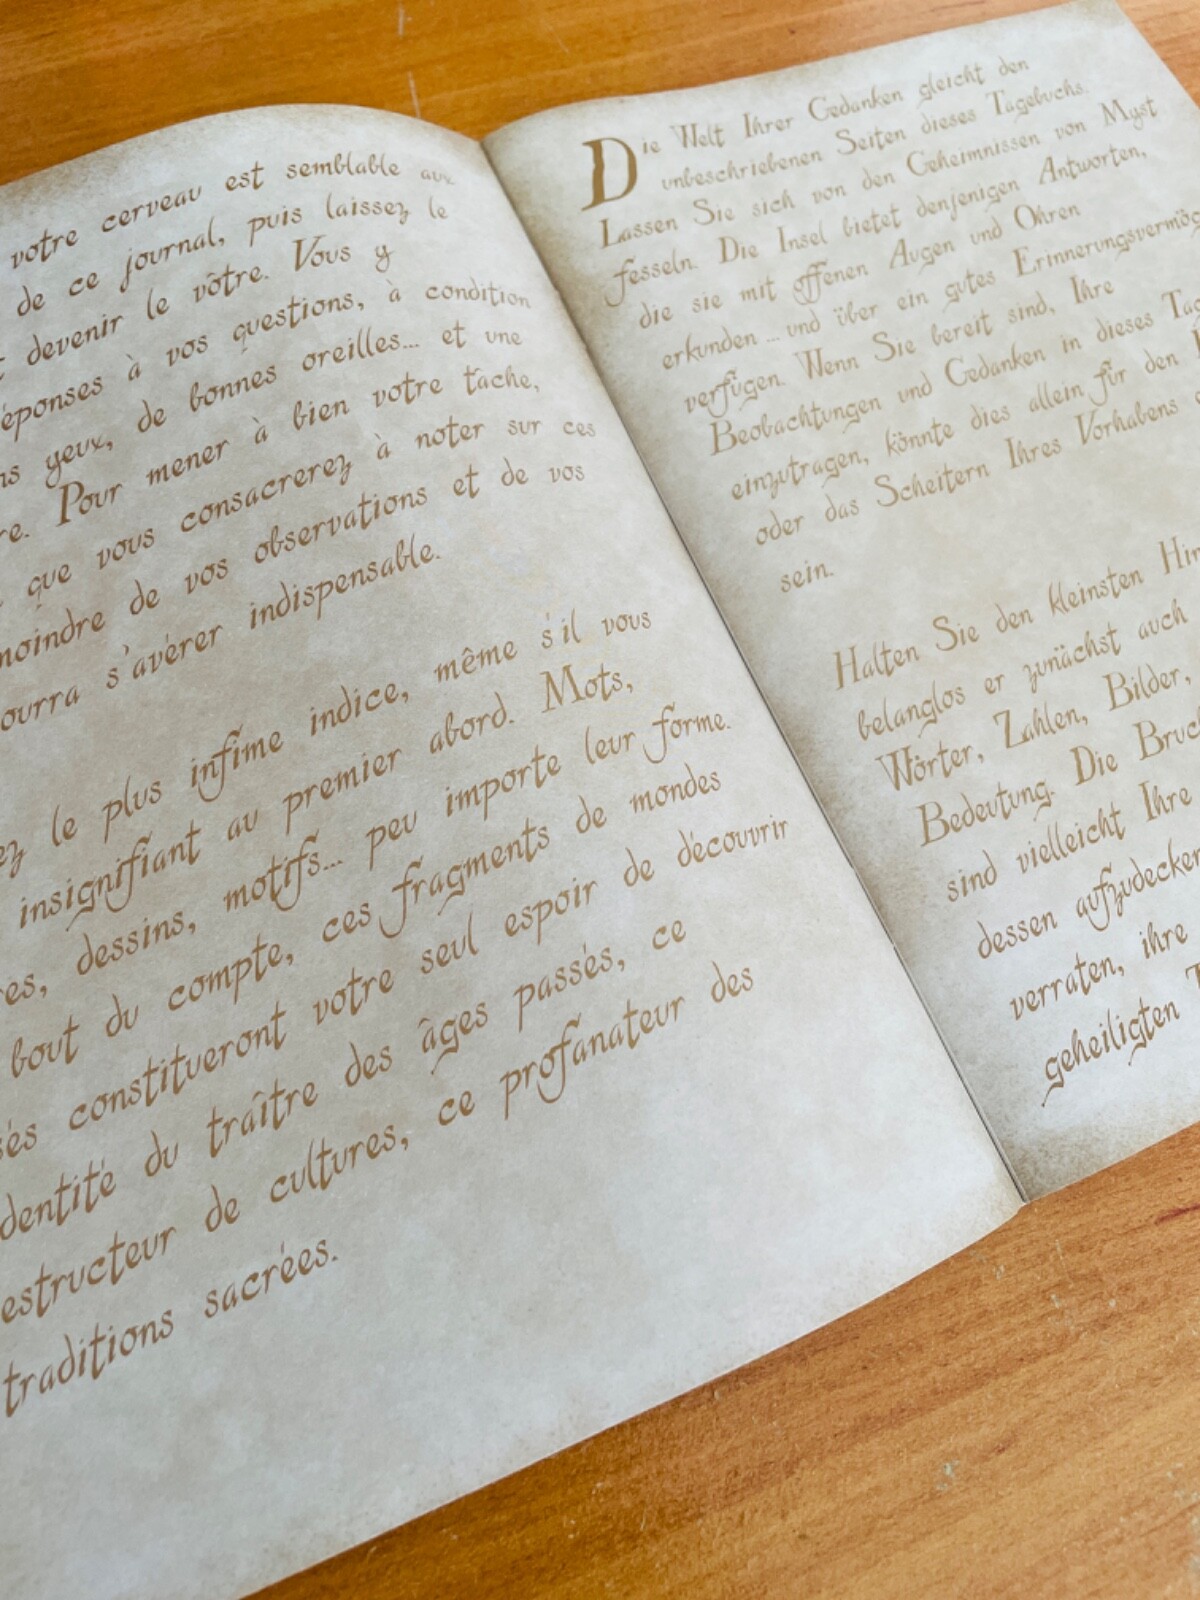 votre cerveau est semblable aux
de ce journal, puis laissez le
devenir le vôtre. Vous y
à vos questions, à condition
yeux, de bonnes oreilles... et une
Pour mener à bien votre tâche,
que vous consacrerez à noter sur ces
moindre de vos observations et de vos
s'avérer indispensable.
le plus infime indice, même s'il vous
insignifiant au premier abord. Mots,
dessins, motifs... peu importe leur forme.
bout du compte, ces fragments de mondes
constitueront votre seul espoir de découvrir
du traître des âges passés, ce
de cultures, ce profanateur des
traditions sacrées.
Die Welt Ihrer Gedanken gleicht den
unbeschriebenen Seiten dieses Tagebuchs.
Lassen Sie sich von den Geheimnissen von Myst
fesseln. Die Insel bietet denjenigen Antworten,
die sie mit offenen Augen und Ohren
erkunden ... und über ein gutes
verfügen. Wenn Sie bereit sind, Ihre
Beobachtungen und Gedanken in dieses
einzutragen, könnte dies allein für den
oder das Scheitern Ihres Vorhabens
sein.
Halten Sie den kleinsten
belanglos er zunächst auch
Wörter, Zahlen, Bilder,
Bedeutung. Die
sind vielleicht Ihre
dessen
verraten, ihre
geheiligten